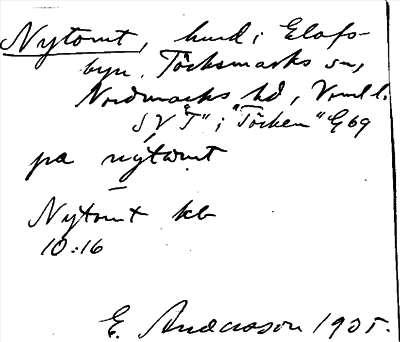 Nytomt, hmd i Elofs-
byn, Töcksmarks sn,
Nordmarks hd, Vrml l.
SV "T" i "Töcken" G 69
på nytomt
Nytomt kb
10:16
E. Andersson 1935.